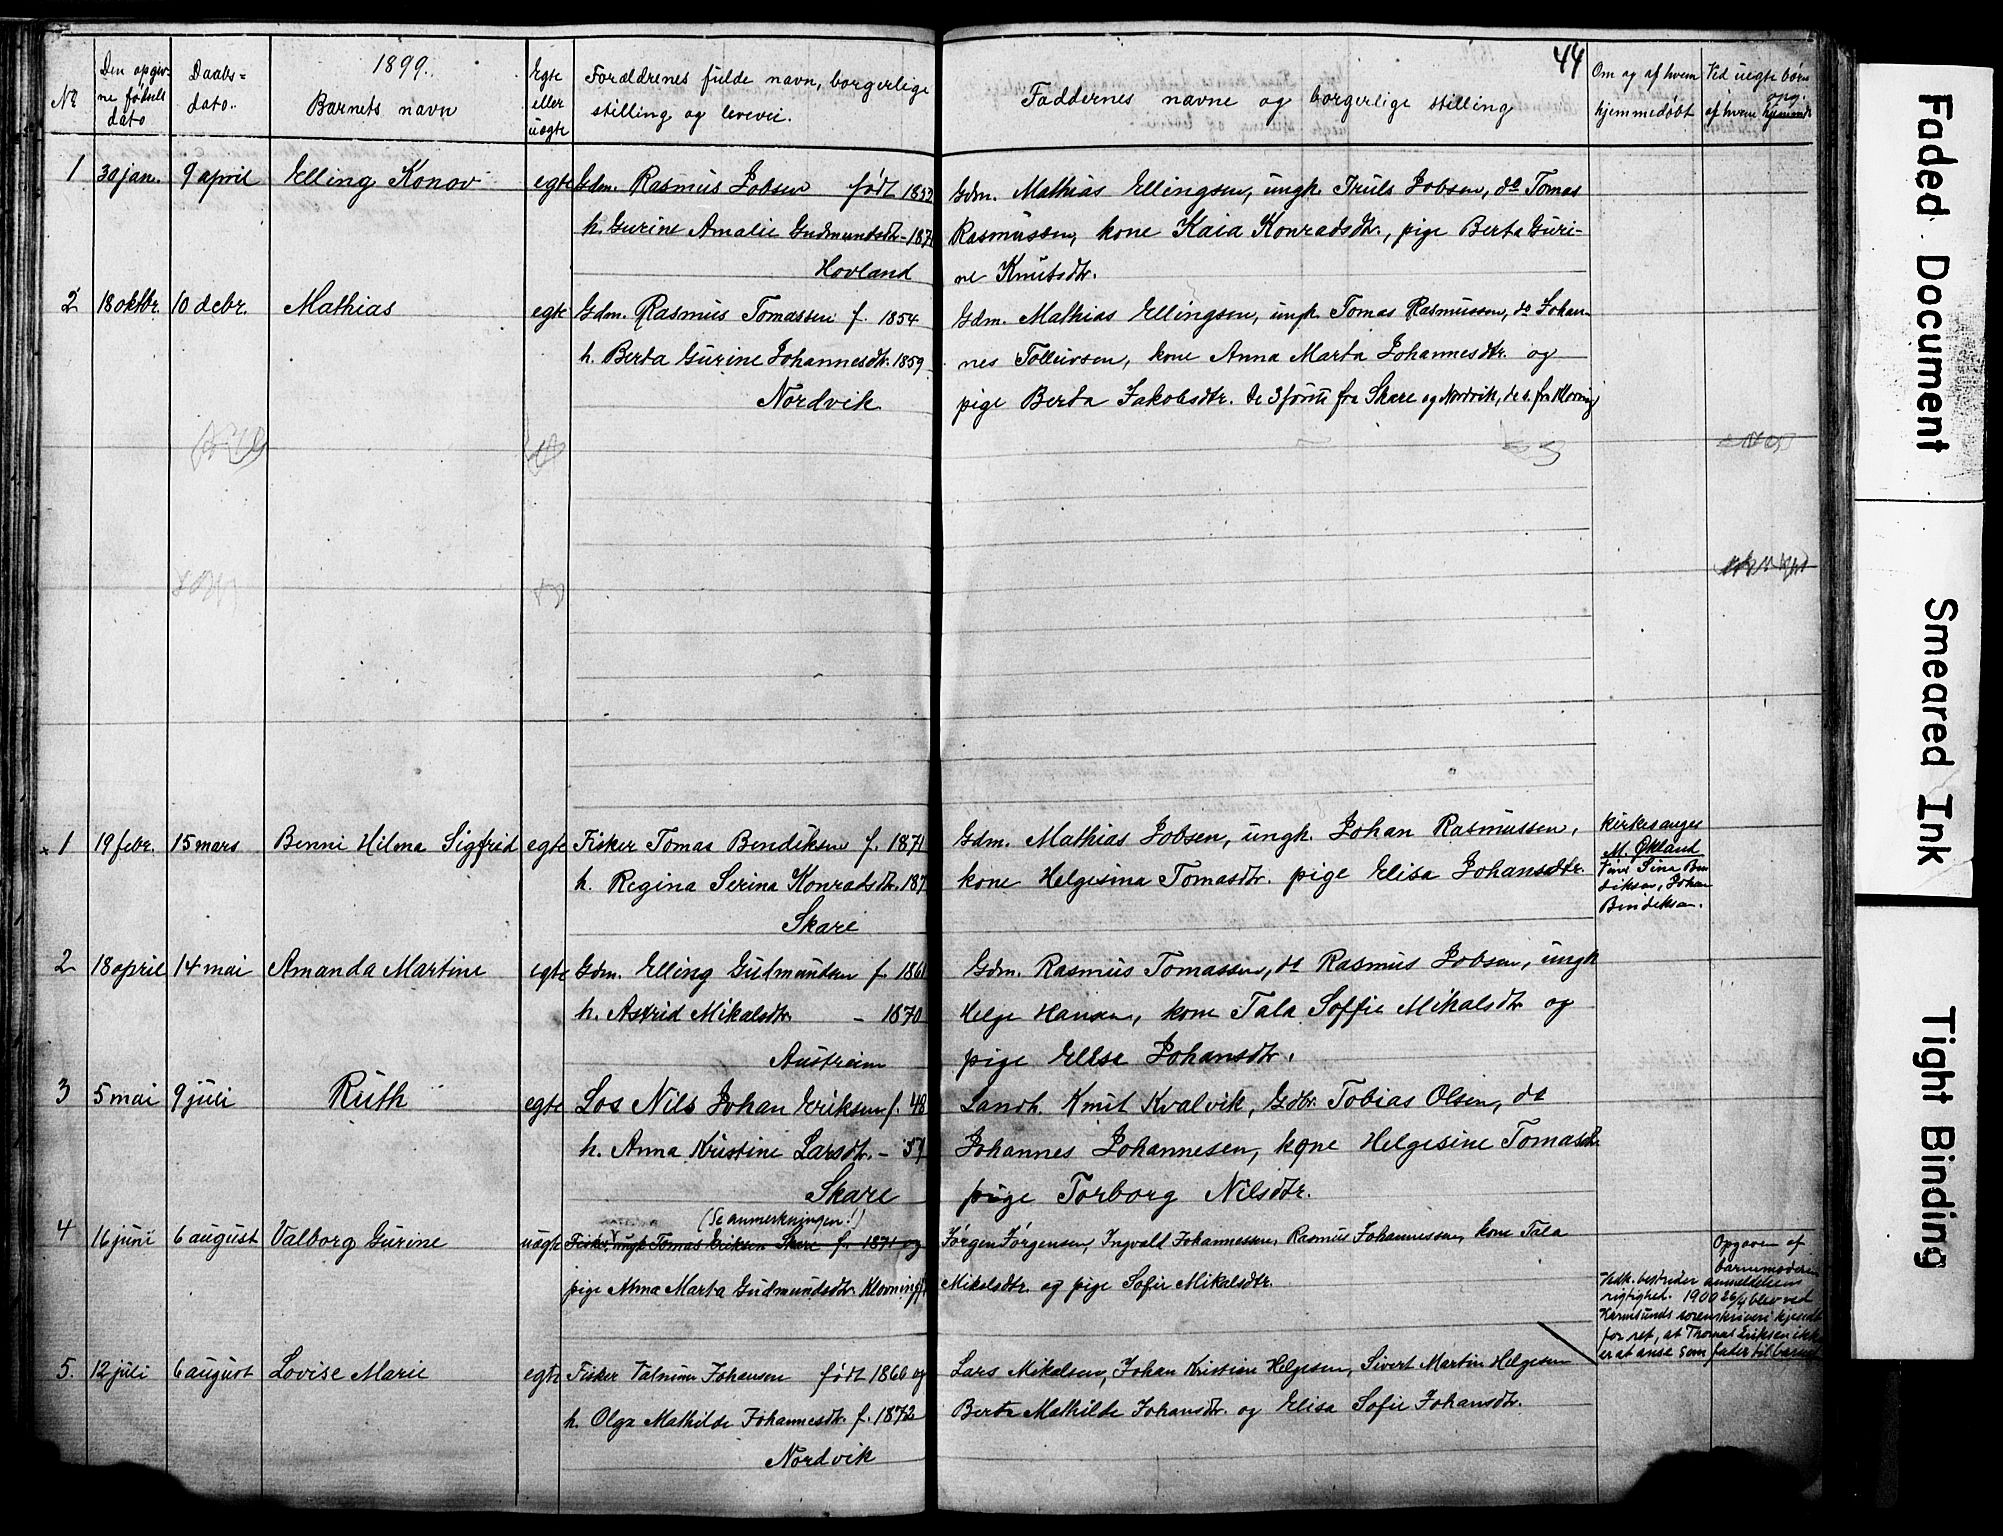 44
1899.
No
Den opgiv-
ne fødsels
dato
Daabs-
dato.
Barnets navn
Egte
eller
uegte
Forældrenes fulde navn, borgerlige
stilling og levevei.
Faddernes navne og borgerlige stilling
Om og af hvem
hjemmedøbt
Ved uegte børn
opg.
af hvem
1 30 jan. 9 april Elling Konov egte Gdm. Rasmus Jobsen født 1853
h. Gurine Amalie Gudmundsdtr - 187
Hovland
Gdm. Mathias Ellingsen, ungk. Truls Jobsen, do Tomas
Rasmussen, kone Kaia Konradsdtr., pige Berta Guri-
ne Knutsdtr.
2 18 oktbr. 10 debr. Mathias egte Gdm. Rasmus Tomassen f. 1854
h. Berta Gurine Johannesdtr. 1859
Nordvik
Gdm. Mathias Ellingsen, ungk. Tomas Rasmussen, do Johan-
nes Tolleivsen, kone Anna Marta Johannesdtr. og
pige Berta Jakobsdtr. de 3 første fra Skare og Nordvik, de s. fra Kloving
x 1 19 febr. 15 mars Benni Hilma Sigfrid egte Fisker Tomas Bendiksen f. 1871
h. Regina Serina Konradsdtr. 187
Skare
Gdm. Mathias Jobsen, ungk. Johan Rasmussen,
kone Helgesina Tomasdtr. pige Elisa Johansdtr.
Kirkesanger
M. Økland
Vine Sina Ben
diksen, Johan
Bendiksen.
2 18 april 14 mai Amanda Martine egte Gdm. Elling Gudmundsen f. 1861
h. Astrid Mikalsdtr. - 1870
Austreim
Gdm. Rasmus Tomassen, do Rasmus Jobsen, ungk
Helge Hansen, kone Tala Soffie Mikalsdtr og
pige Elise Johansdtr.
3 5 mai 9 juli Ruth egte Los Nils Johan Eriksen f. 48
h. Anna Kristine Larsdtr. - 57
Skare
Landh. Knut Kvalvik, Gdbr. Tobias Olsen, do
Johannes Johannesen, kone Helgesine Tomasdtr
pige Torborg Nilsdtr.
(Se anmerkningen!)
4 16 juni 6 august Valborg Gurine uegte Fisker, ungk Tomas Eriksen Skare f. 1871 og
pige Anna Marta Gudmundsdtr. Klovning f.
Jørgen Jørgensen, Ingvald Johannessen, Rasmus Johannessen, kone Tala
Mikalsdtr. og pige Sofie Mikalsdtr.
Opgaven af
barnemoderen
Vedk. bestrider anmeldelsens
rigtighed. 1900 26/4 blev ved
Karmsunds sorenskriveri kjendt
for ret, at Thomas Eriksen ikke
er at anse som fader til barnet
5. 12 juli 6 august Lovise Marie egte Fisker Valnum Johansen født 1866 og
h. Olga Mathilde Johannesdtr. f. 1872
Nordvik
Lars Mikalsen, Johan Kristian Helgesen, Sivert Martin Helgesen
Berte Mathilde Johansdtr. og Elisa Sofie Johansdtr.
Faded Document
Smeared Ink
Tight Binding